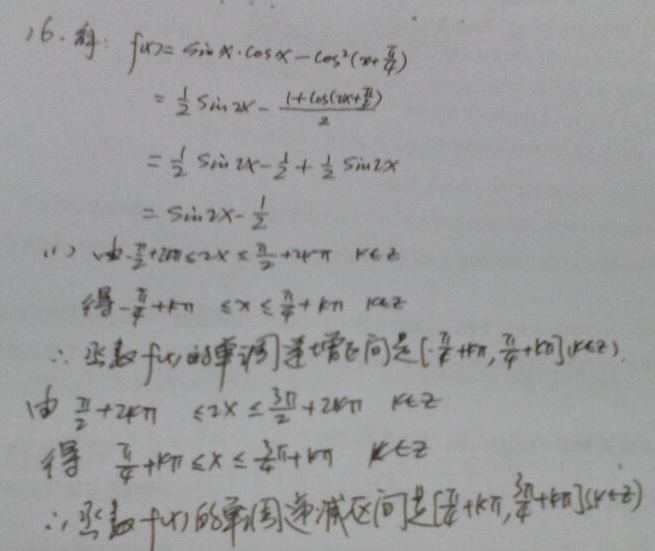 16.解: f(x)=sinx·cosx-cos²(x+π/4)
=1/2 sin2x-(1+cos(2x+π/2))/2
=1/2 sin2x-1/2+1/2 sin2x
=sin2x-1/2
(1) 由-π/2+2kπ≤2x≤π/2+2kπ k∈Z
得-π/4+kπ ≤x≤π/4+kπ k∈Z
∴函数f(x)的单调递增区间是[-π/4+kπ,π/4+kπ](k∈Z).
由 π/2+2kπ ≤2x≤3π/2+2kπ k∈Z
得 π/4+kπ≤x≤3/4π+kπ k∈Z
∴函数f(x)的单调递减区间是[π/4+kπ,3π/4+kπ](k∈Z)